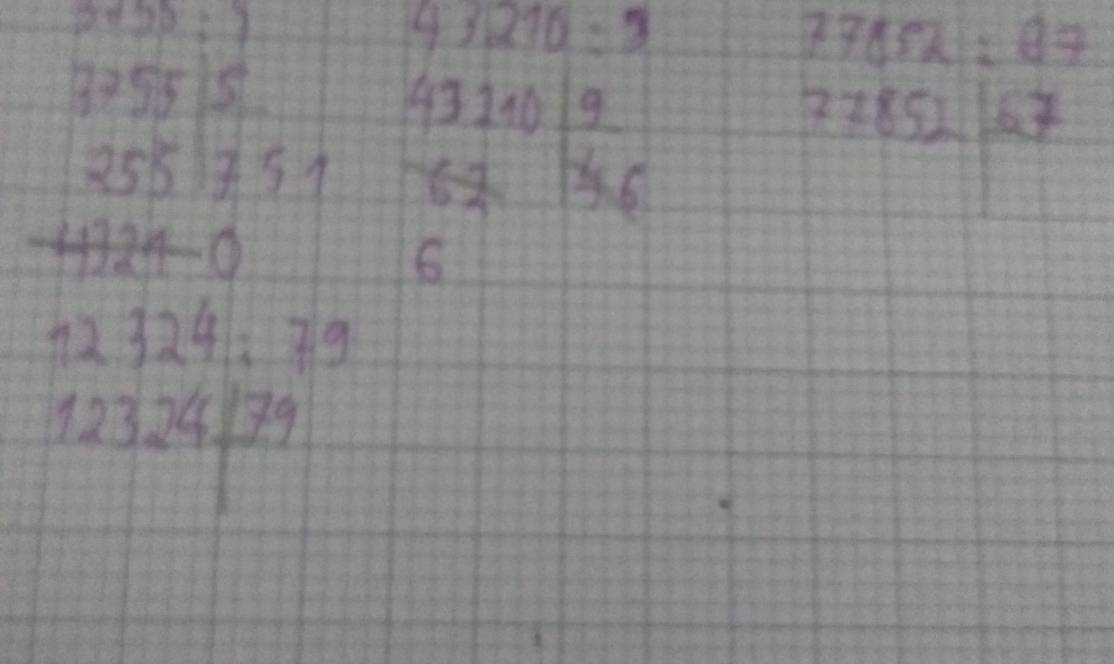 3755 : 5
3755 5
255 751
0
12 324 : 79
12324 79
43210 : 9
43210 9
6
77852 : 67
77852 67